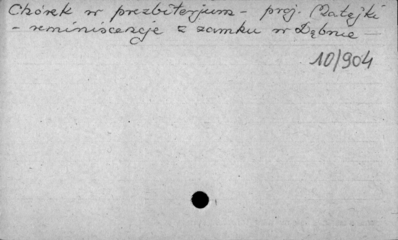 Chórek w prezbiterjum - proj. Matejki
- reminiscencje z zamku w Dębnie -
10/904